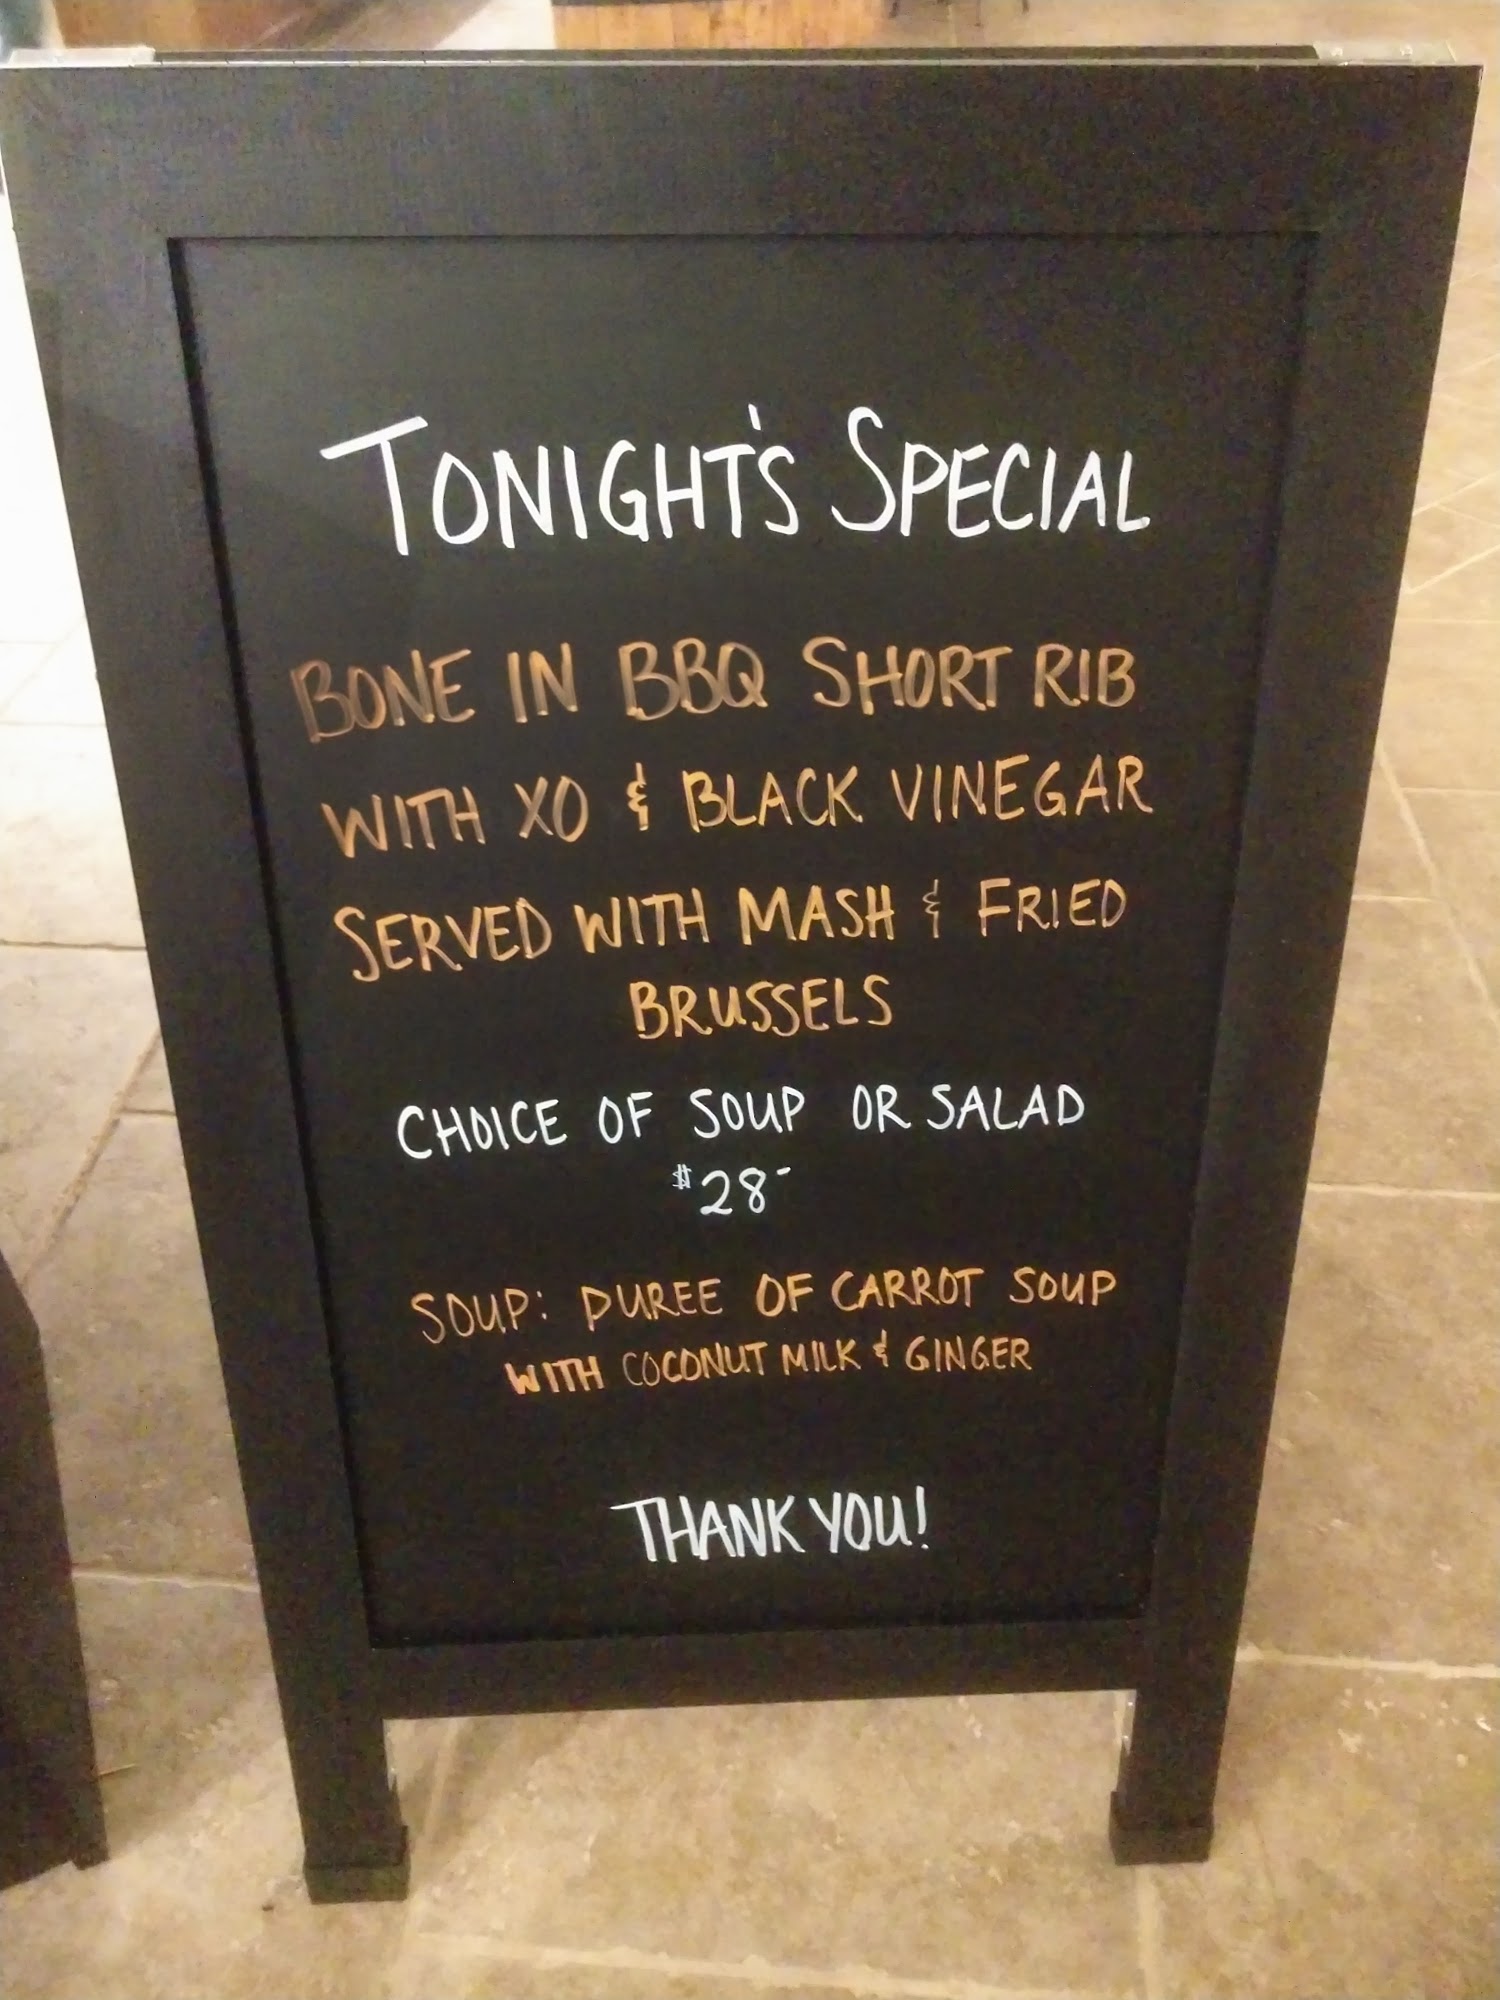 TONIGHT'S SPECIAL
BONE IN BBQ SHORT RIB
WITH XO & BLACK VINEGAR
SERVED WITH MASH & FRIED
BRUSSELS
CHOICE OF SOUP OR SALAD
$28-
SOUP: PUREE OF CARROT SOUP
WITH COCONUT MILK & GINGER
THANK YOU!